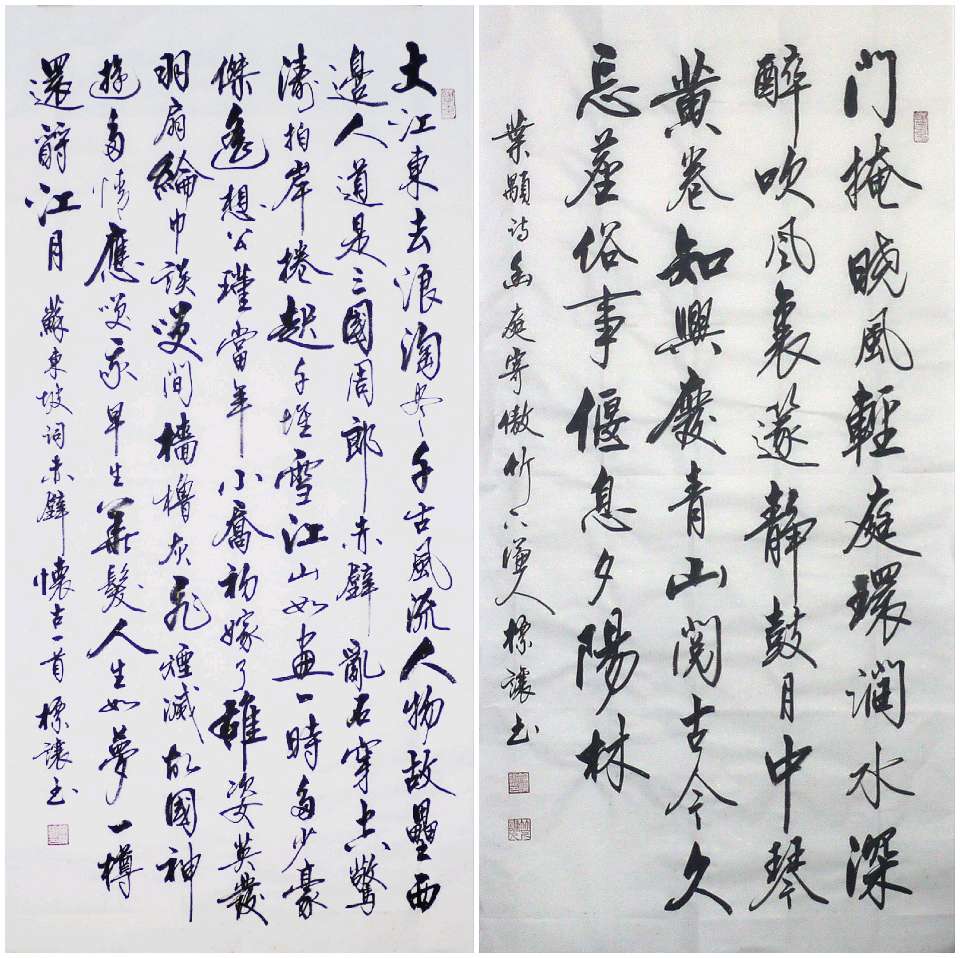 大江東去浪淘盡千古風流人物故壘西
邊人道是三國周郎赤壁亂石穿空驚
濤拍岸捲起千堆雪江山如畫一時多少豪
傑遙想公瑾當年小喬初嫁了雄姿英發
羽扇綸巾談笑間檣櫓灰飛煙滅故國神
遊多情應笑我早生華髮人生如夢一樽
還酹江月 蘇東坡詞赤壁懷古一首 標讓书
門掩晓風輕庭環澗水深
醉吹風裏篴靜鼓月中琴
黄卷知興廢青山閱古今久
忘塵俗事偃息夕陽林
葉顒诗幽庭寄傲竹下漁人標讓书